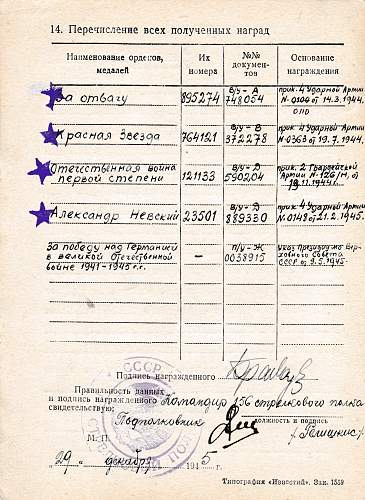 14. Перечисление всех полученных наград
Наименование орденов, медалей
Их номера
№№ документов
Основание награждения
За отвагу 895274 В/у - А 748054 прик. 4 Ударной Армии N-0104 от 14.3.1944.
Красная Звезда 764121 В/у - В 372278 прик 4 Ударной Армии N 0363 от 19.7.1944.
Отечественная война первой степени 121133 В/у - Д 590204 прик. 2 Гвардейской Армии N-126/Н, от 19.11.1944г.
Александр Невский 23501 В/у - Д 889330 прик 4 Ударной Армии N 0148 от 21.2.1945.
За победу над Германией в великой Отечественной войне 1941-1945 г.г. - П/у - Ж 0038915 Указ Президиума Верховного Совета СССР от 9.5.1945.
Подпись награжденного
Правильность данных
и подпись награжденного Командир 156 стрелкового полка
свидетельствую:
Подполковник
должность и подпись
М. П.
„29" декабря 1945 г.
Типография «Известий». Зак. 1559
СССР